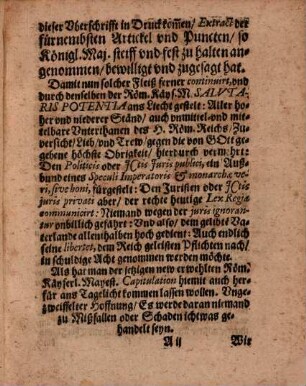 dieser Vberschrifft in Druck kom̃en/ Extract der
fürnembsten Artickel vnd Puncten/ so
Königl. Maj. steiff vnd fest zu halten an-
genommen/ bewilligt vnd zugesagt hat.
Damit nun solcher Fleiß ferner continuirt, vnd
durch denselben der Röm. Käys. M. SALVTA-
RIS POTENTIA ans Liecht gestelt: Aller ho-
her vnd niederer Ständ/ auch vnmittel-vnd mit-
telbare Vnterthanen des H. Röm. Reichs/ Zu-
versicht/ Lieb/ vnd Trew/ gegen die von GOtt ge-
gebene höchste Obrigkeit/ hierdurch vermehrt:
Den Politicis oder Ictis juris publici, ein Auß-
bund eines Speculi Imperatoris & monarchæ ve-
ri, sive boni, fürgestelt: Den Juristen oder Ictis
juris privati aber/ der rechte heutige Lex Regia
communicirt: Niemand wegen der juris ignoran-
tiæ vnbillich gefährt: Vnd also/ dem geliebt Va-
terlande allenthalben hoch gedient: Auch endlich
seine libertet, dem Reich geleisten Pflichten nach/
in schuldige Acht genommen werden möchte.
Als hat man der jetzigen new erwehlten Röm.
Käyserl. Mayest. Capitulation hiemit auch her-
für ans Tagelicht kommen lassen wollen. Vnge-
zweiffelter Hoffnung/ Es werde daran niemand
zu Mißfallen oder Schaden ichtwas ge-
handelt seyn.
A ij Wir